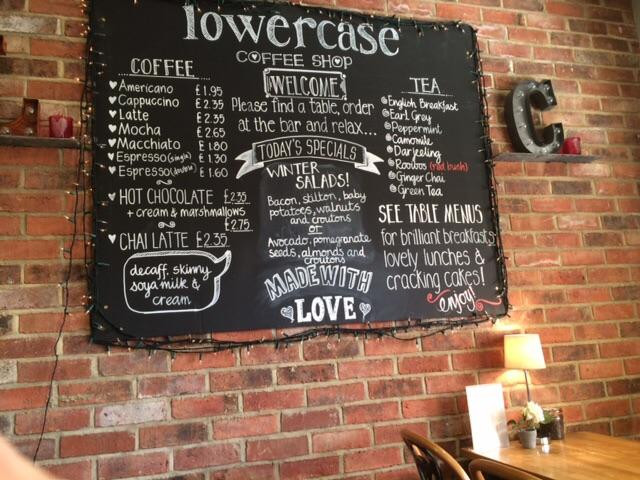 lowercase
COFFEE SHOP
COFFEE
Americano £1.95
Cappuccino £2.35
Latte £2.35
Mocha £2.65
Macchiato £1.80
Espresso (single) £1.30
Espresso (double) £1.60
HOT CHOCOLATE £2.35
+ cream & marshmallows
£2.75
CHAI LATTE £2.35
decaff, skinny,
soya milk &
cream
WELCOME
Please find a table, order
at the bar and relax...
TODAY'S SPECIALS
WINTER
SALADS!
Bacon, stilton, baby
potatoes, walnuts
and croutons
or
Avocado, pomegranate
seeds, almonds and
croutons
MADE WITH
LOVE
TEA
English Breakfast
Earl Grey
Peppermint
Camomile
Darjeeling
Rooibos (red bush)
Ginger Chai
Green Tea
SEE TABLE MENUS
for brilliant breakfasts
lovely lunches &
cracking cakes!
enjoy!
C